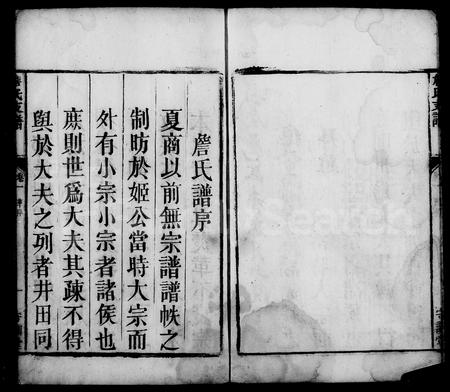 詹氏譜序
夏商以前無宗譜譜帙之
制昉於姬公當時大宗而
外有小宗小宗者諸侯也
庶則世爲大夫其疎不得
與於大夫之列者井田同